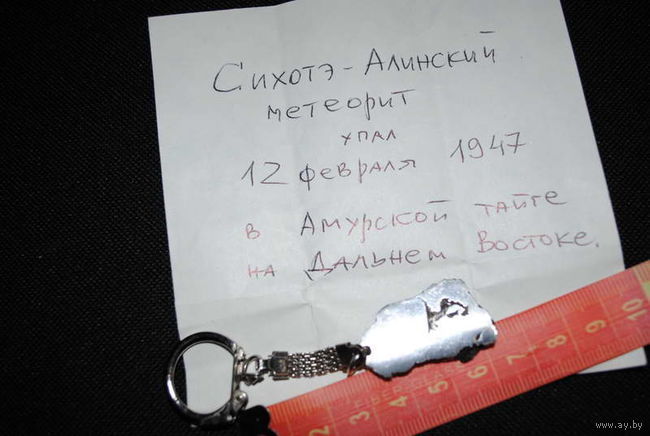 Сихотэ-Алинский
метеорит
упал
12 февраля 1947
в Амурской тайге
на Дальнем Востоке.
2 3 4 5 6 7 8 9 10
www.ay.by